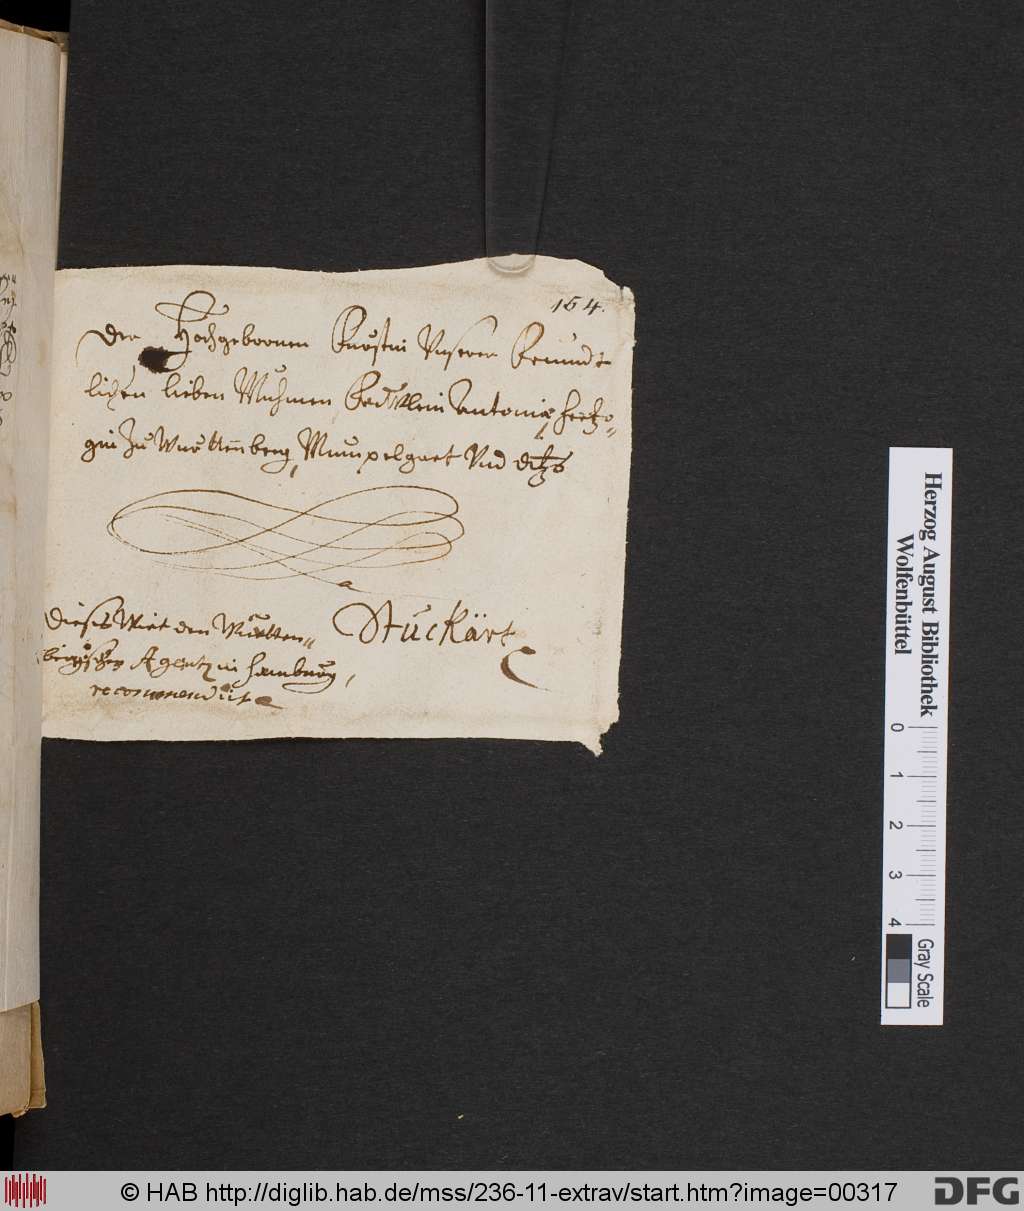 154.
Der Hochgebornen Fürstin Unserer Freündt
lichen lieben Muhmen, Freüllein Antoniæ, Hertzo-
gin Zu Württenberg, Mümpelgart Und
Stuckärt
dieses Wirt dem Württen-
bergischen Agenten in Hamburg,
recommendiit
Herzog August Bibliothek
Wolfenbüttel
0 1 2 3 4
Gray Scale
© HAB http://diglib.hab.de/mss/236-11-extrav/start.htm?image=00317
DFG